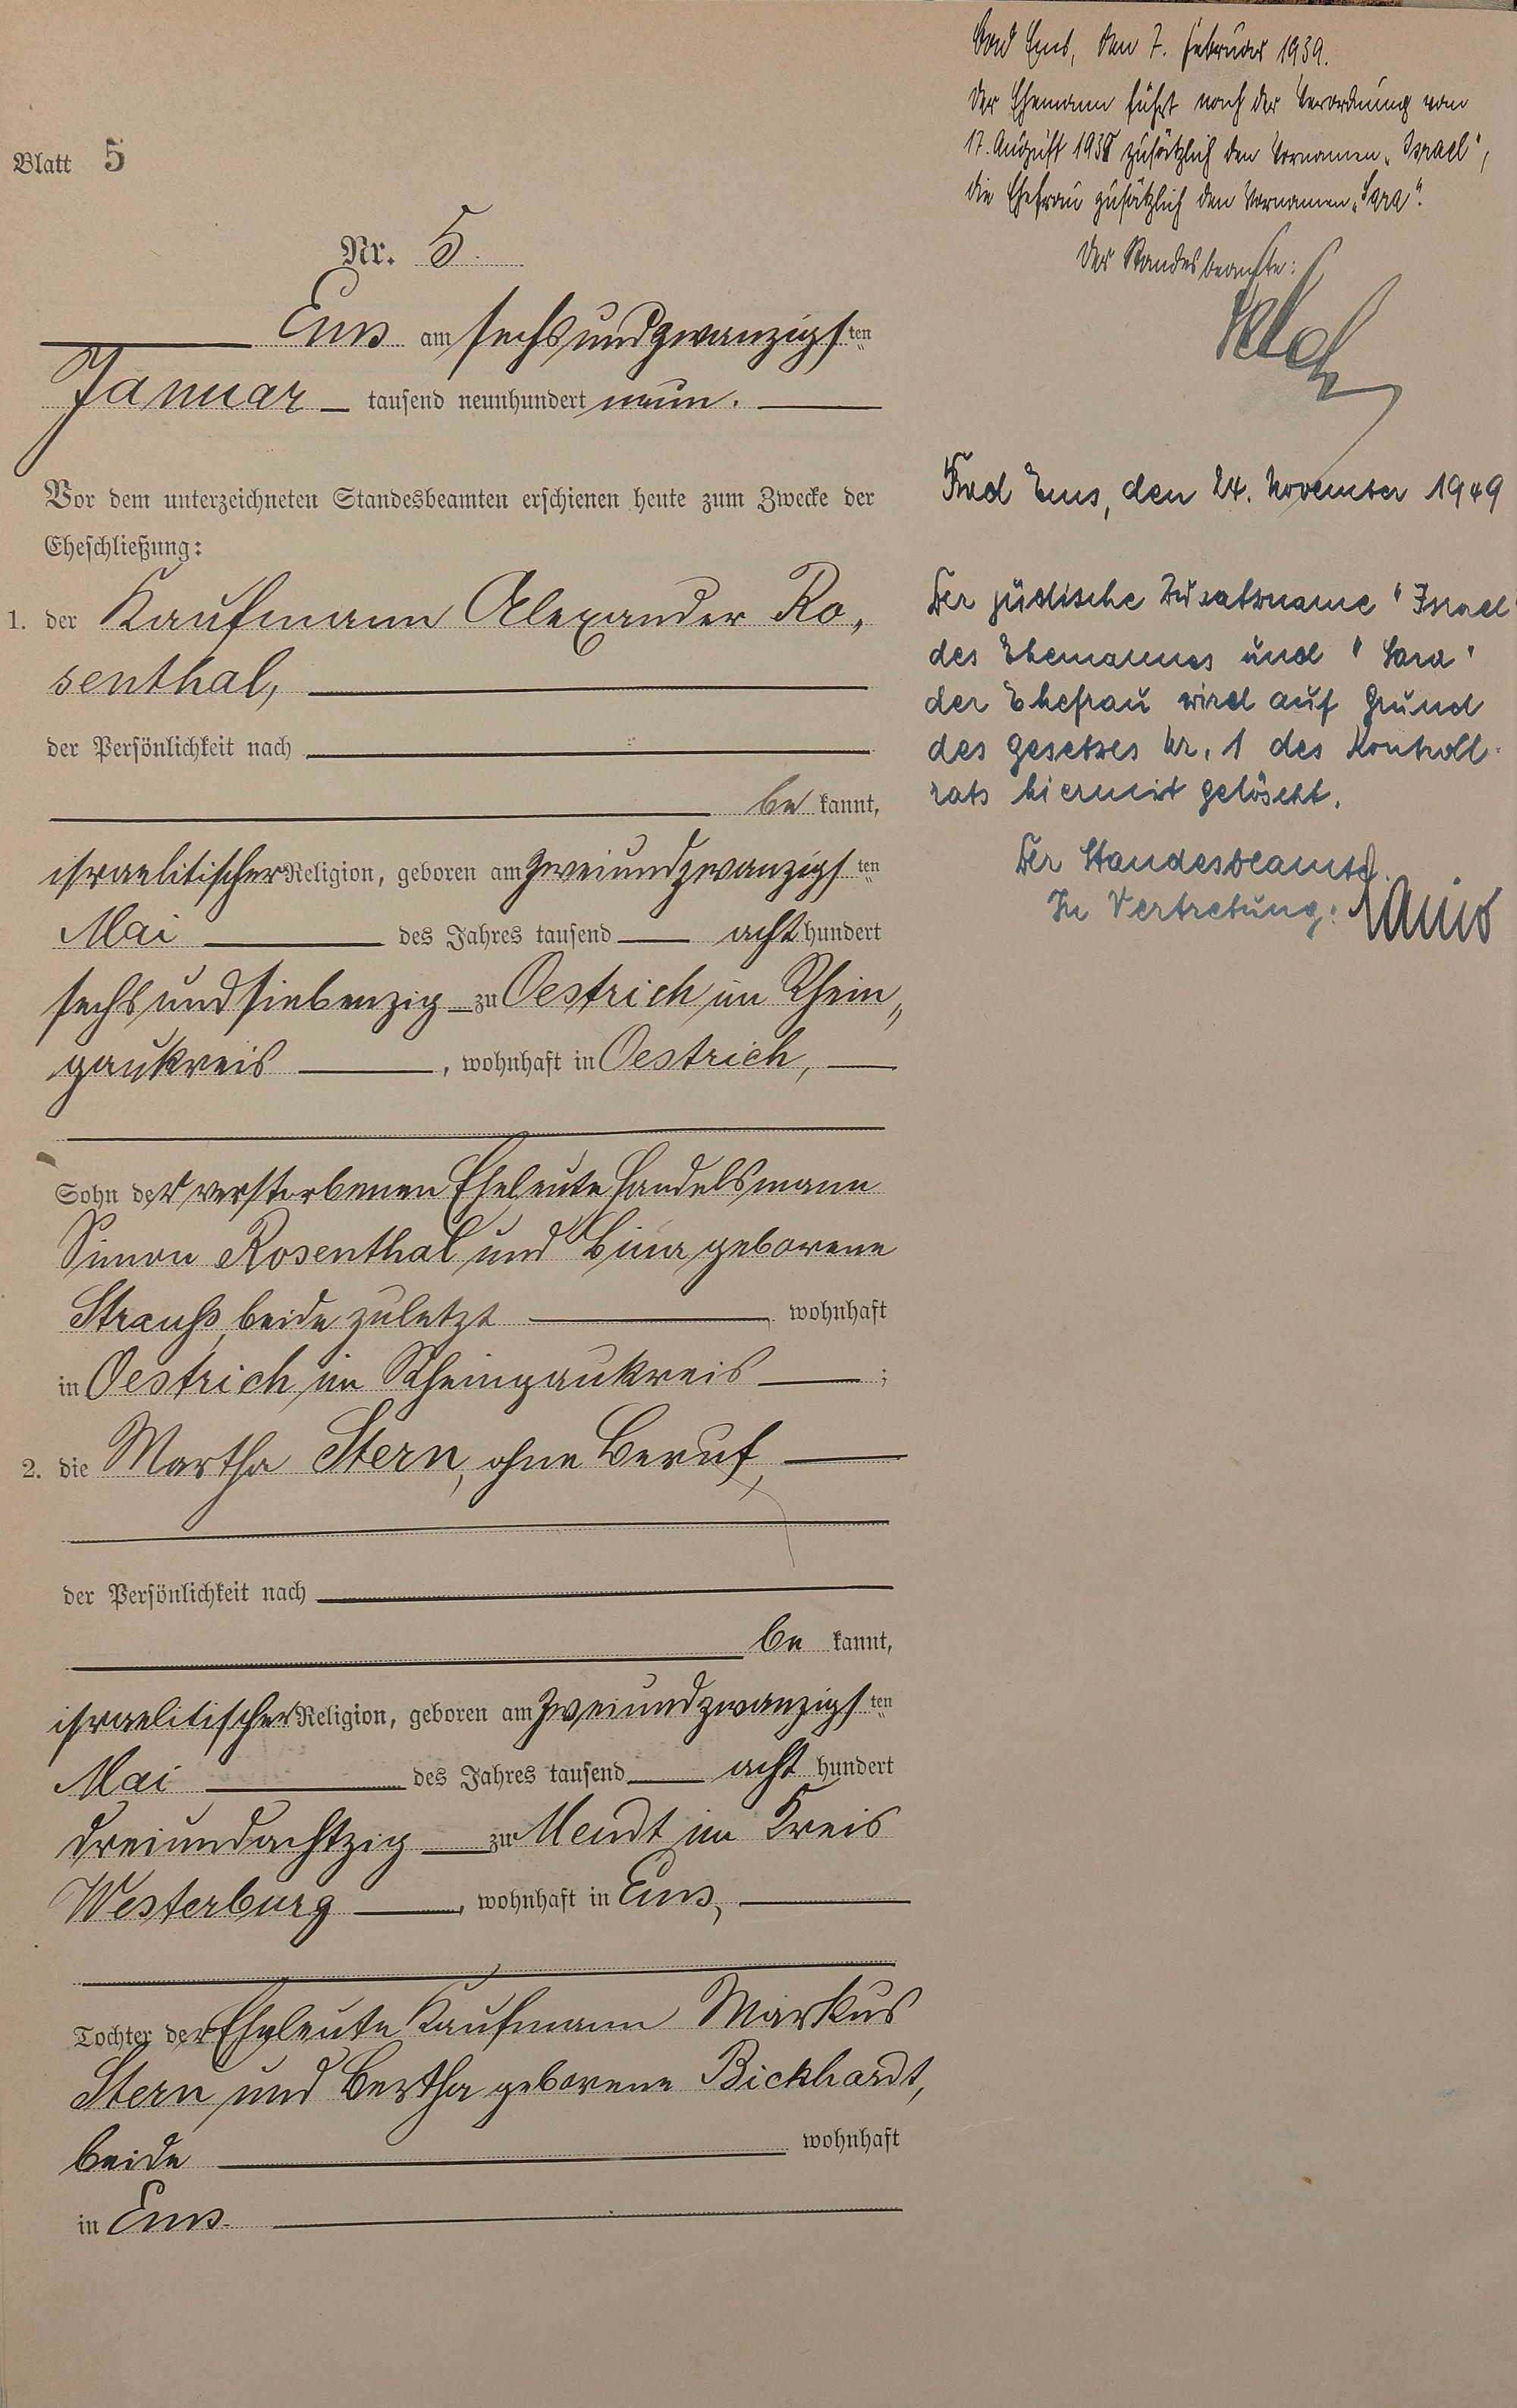 Blatt 5
Nr. 5.
Ems am sechsundzwanzigsten
Januar tausend neunhundert neun.
Vor dem unterzeichneten Standesbeamten erschienen heute zum Zwecke der
Eheschließung:
1. der Kaufmann Alexander Ro-
senthal,
der Persönlichkeit nach
be kannt,
israelitischer Religion, geboren am zweiundzwanzigsten
Mai des Jahres tausend acht hundert
sechsundsiebenzig zu Oestrich im Rhein-
gaukreis, wohnhaft in Oestrich,
Sohn der verstorbenen Eheleute Handelsmann
Simon Rosenthal und Bina geborene
Strauß, beide zuletzt wohnhaft
in Oestrich im Rheingaukreis;
2. die Martha Stern, ohne Beruf,
der Persönlichkeit nach
be kannt,
israelitischer Religion, geboren am zweiundzwanzigsten
Mai des Jahres tausend acht hundert
dreiundachtzig zu Meudt im Kreis
Westerburg, wohnhaft in Ems,
Tochter der Eheleute Kaufmann Markus
Stern und Bertha geborene Bickhardt,
beide wohnhaft
in Ems.
Bad Ems, den 7. Februar 1939.
Der Ehemann führt nach der Verordnung vom
17. August 1938 zusätzlich den Vornamen „Israel",
die Ehefrau zusätzlich den Vornamen „Sara".
Der Standesbeamte:
Bad Ems, den 24. November 1949
Der jüdische Zusatzname "Israel"
des Ehemannes und "Sara"
der Ehefrau wird auf Grund
des Gesetzes Nr. 1 des Kontroll-
rats hiermit gelöscht.
Der Standesbeamte.
In Vertretung: